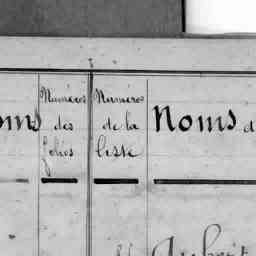 oms
Numéros
des
folios
Numéros
de la
liste
Noms d
Aubert